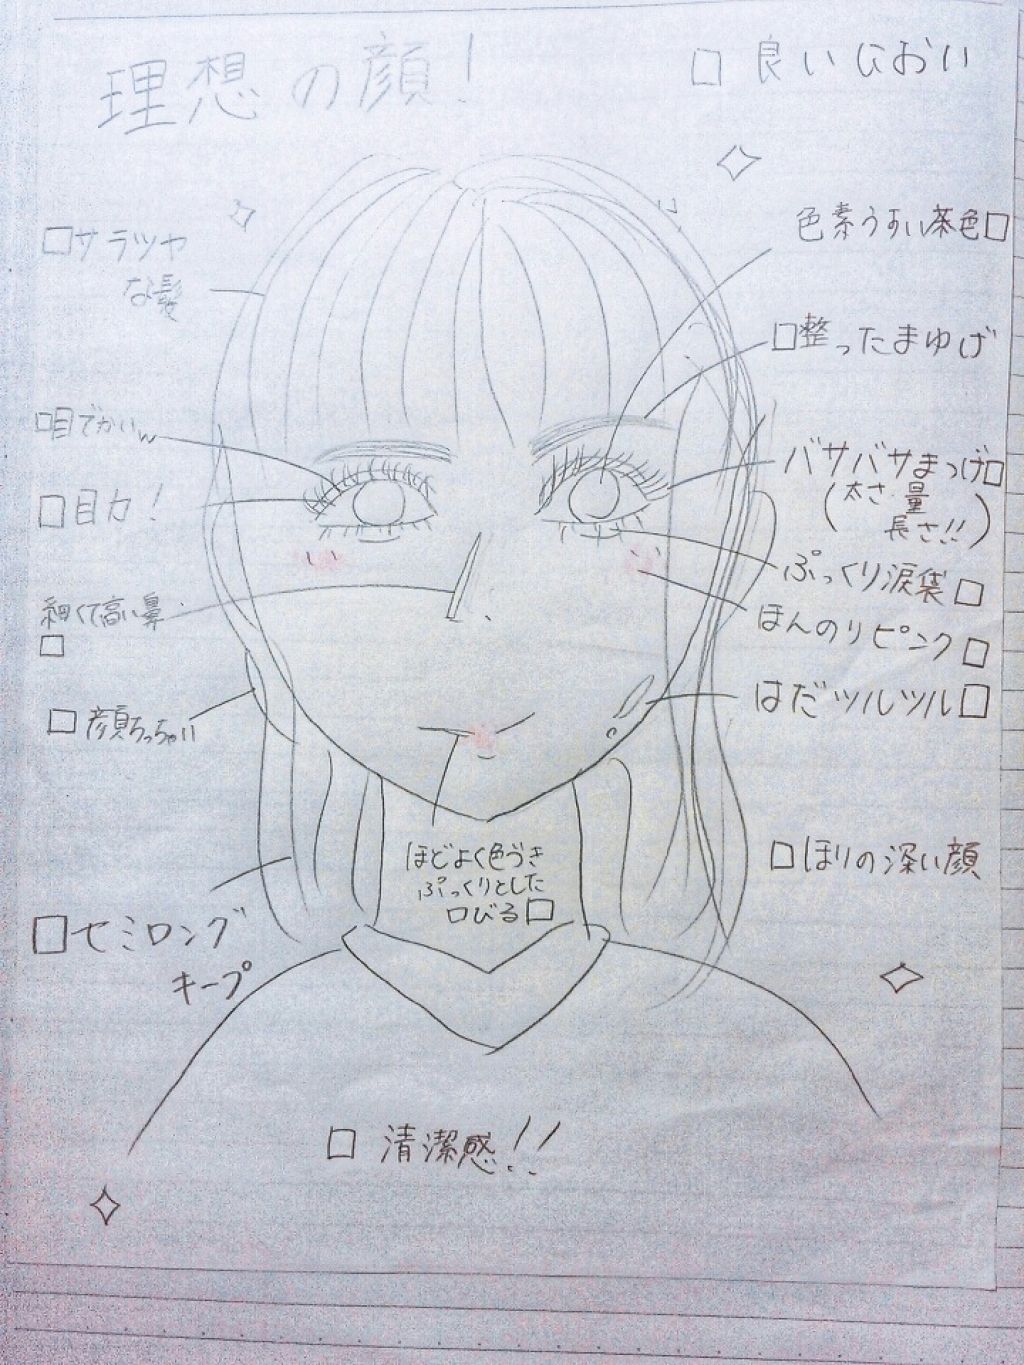 理想の顔!
□ 良いにおい
□サラツヤ
な髪
色素うすい茶色□
□整ったまゆげ
□目でかいw
バサバサまつげ□
(太さ 量
長さ!!)
□目力!
ぷっくり涙袋□
細くて高い鼻
□
ほんのりピンク□
はだツルツル□
□顔ちっちゃい
ほどよく色づき
ぷっくりとした
口びる□
□ほりの深い顔
□セミロング
キープ
□ 清潔感!!